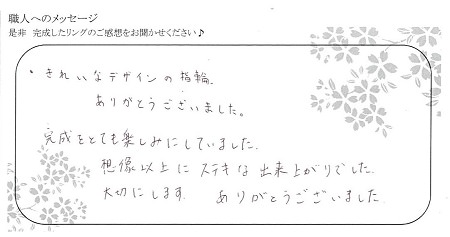 職人へのメッセージ
是非 完成したリングのご感想をお聞かせください♪
・きれいなデザインの指輪。
ありがとうございました。
完成をとても楽しみにしていました。
想像以上にステキな出来上がりでした。
大切にします。 ありがとうございました